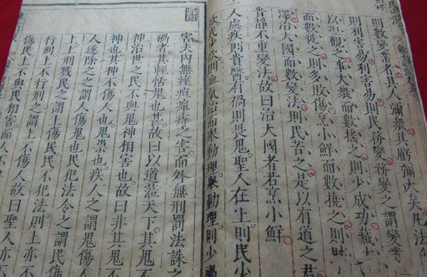 則數變業者其人彌衆其虧彌大矣凡法
則利害易利害易則民務變務變之謂變
以理觀之事大衆而數搖之則少成功藏大
而數徙之則多敗傷烹小鮮而數撓之則賊
澤治大國而數變法則民苦之是以有道之君
貴靜不重變法故曰治大國者若烹小鮮
人處疾則貴醫有禍則畏鬼聖人在上則民少
欲民少欲則血氣治而舉動理舉動理則少禍
害夫內無痤疽癉痔之害而外無刑罰法誅之
禍者其輕恬鬼也甚故曰以道蒞天下其鬼
神治世之民不與鬼神相害也故曰非其鬼不
神也其神不傷人也鬼祟也疾人之謂鬼傷
人逐除之之謂人傷鬼也民犯法令之謂民傷
上上刑戮民之謂上傷民民不犯法則上亦
行刑上不行刑之謂上不傷人故曰聖人亦
傷民上不與民相害而人不